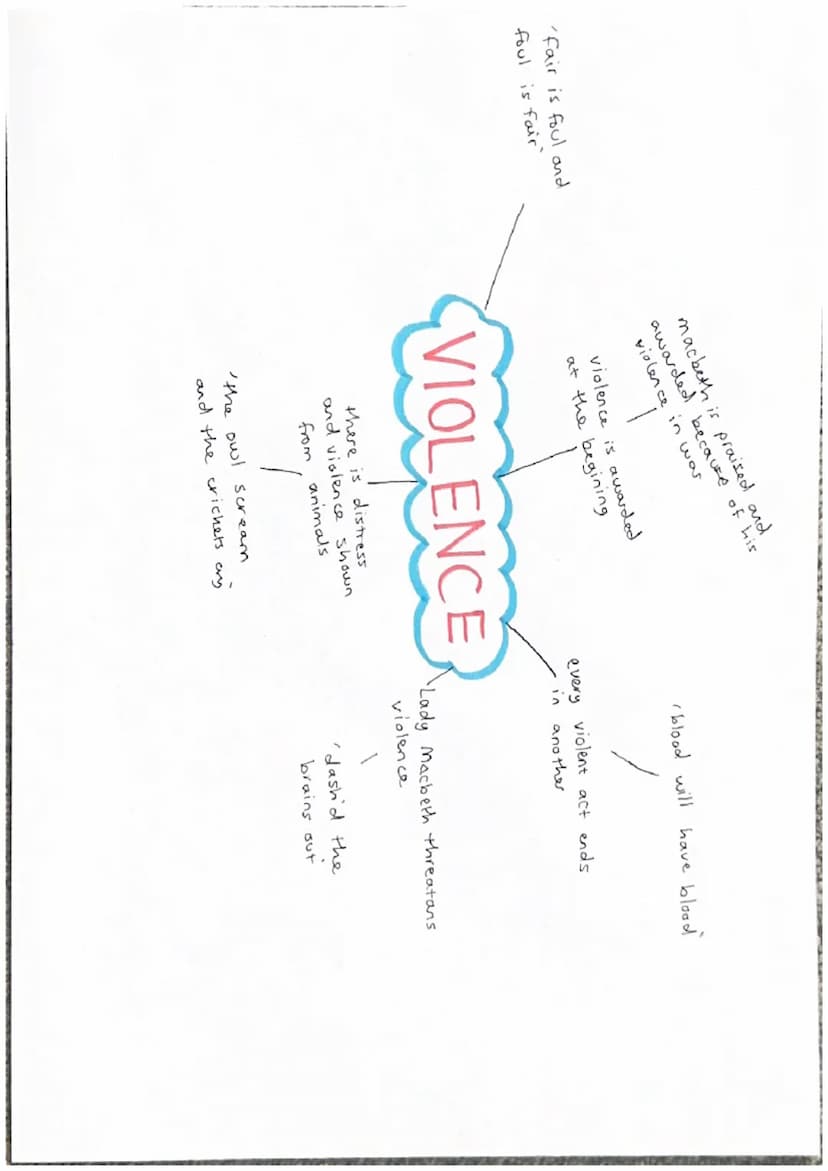 'fair is foul and
foul is fair'
macbeth is praised and
awarded because of his
violence in war
violence is awarded
at the begining
VIOLENCE
'blood will have blood'
every violent act ends
in another
there is distress
and violence shown
from animals
'the owl scream
and the crickets cry'
Lady Macbeth threatans
violence
'dash'd the
brains out'